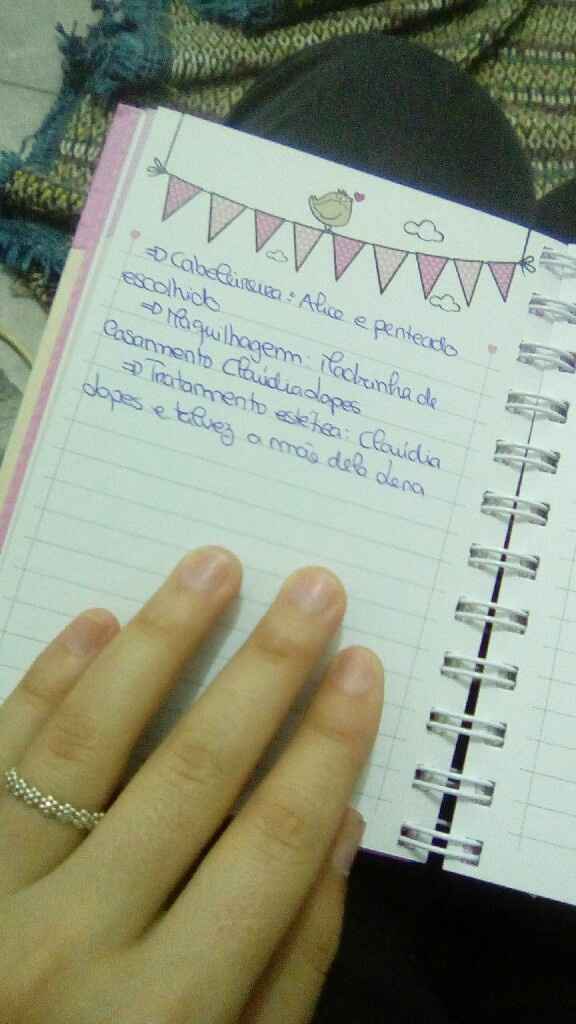 => Cabeleireira: Alice e penteado
escolhido
=> Maquilhagem: Madrinha de
Casamento Claúdia Lopes
=> Tratamento estética: Claúdia
Lopes e talvez a mãe dela Lena